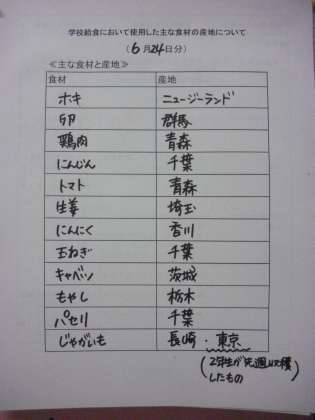 学校給食において使用した主な食材の産地について
(6月24日分)
≪主な食材と産地≫
食材 産地
ホキ ニュージーランド
卵 群馬
鶏肉 青森
にんじん 千葉
トマト 青森
生姜 埼玉
にんにく 香川
玉ねぎ 千葉
キャベツ 茨城
もやし 栃木
パセリ 千葉
じゃがいも 長崎・東京
(2年生が先週収穫
したもの)